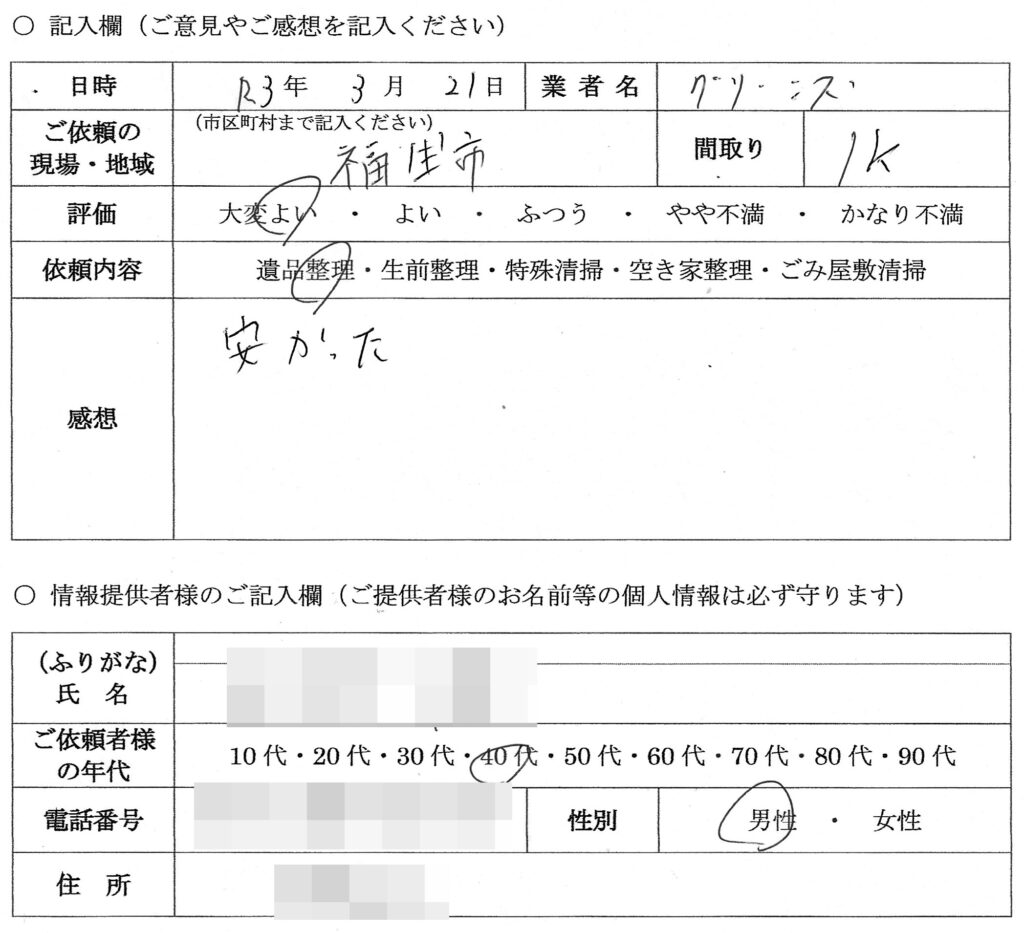 ○ 記入欄（ご意見やご感想を記入ください）
日時 R3年 3月 21日 業者名 グリーンズ
ご依頼の現場・地域 （市区町村まで記入ください） 福生市 間取り 1K
評価 大変よい ・ よい ・ ふつう ・ やや不満 ・ かなり不満
依頼内容 遺品整理・生前整理・特殊清掃・空き家整理・ごみ屋敷清掃
感想 安かった
○ 情報提供者様のご記入欄（ご提供者様のお名前等の個人情報は必ず守ります）
（ふりがな）
氏 名
ご依頼者様の年代 10代・20代・30代・40代・50代・60代・70代・80代・90代
電話番号 性別 男性 ・ 女性
住 所